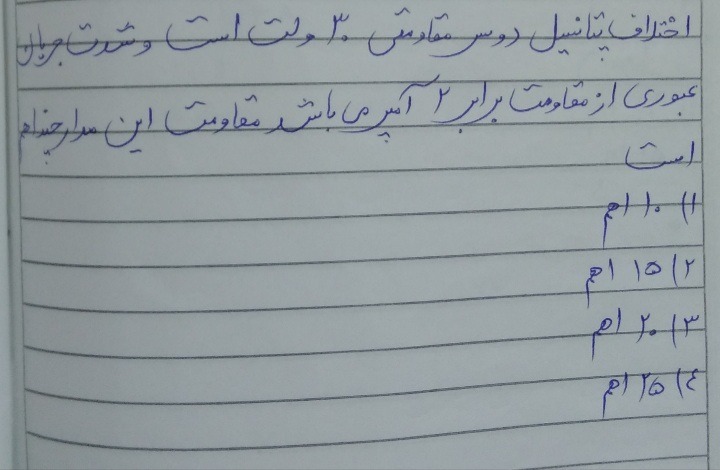 اختلاف پتانسیل دو سر مقاومتی ۳۰ ولت است و شدت جریان
عبوری از مقاومت برابر ۲ آمپر می باشد مقاومت این مدار چند اهم
است
۱) ۱۰ اهم
۲) ۱۵ اهم
۳) ۲۰ اهم
٤) ۲۵ اهم